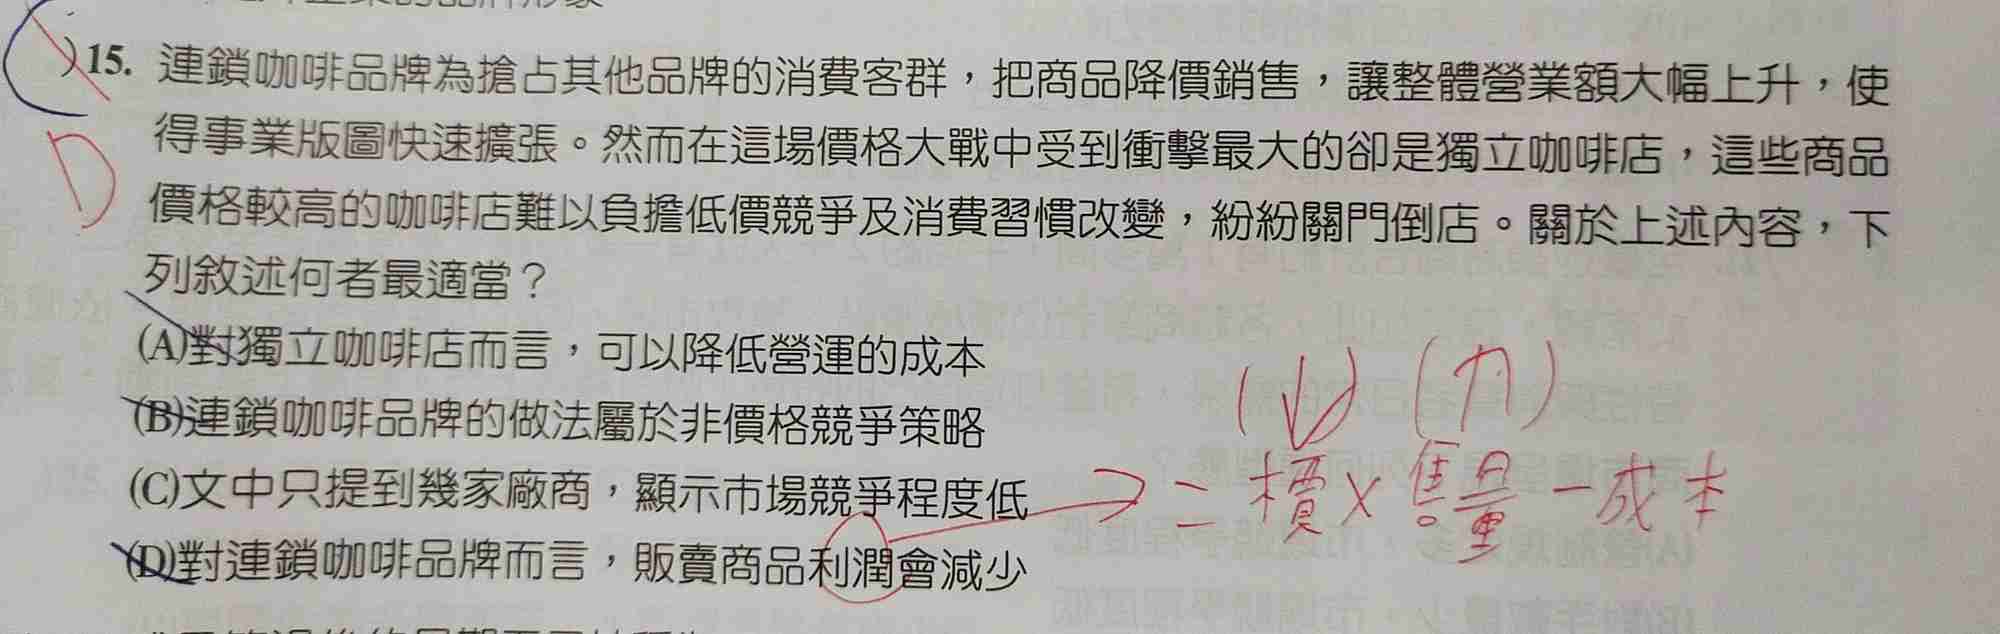 )15. 連鎖咖啡品牌為搶占其他品牌的消費客群，把商品降價銷售，讓整體營業額大幅上升，使
得事業版圖快速擴張。然而在這場價格大戰中受到衝擊最大的卻是獨立咖啡店，這些商品
D
價格較高的咖啡店難以負擔低價競爭及消費習慣改變，紛紛關門倒店。關於上述內容，下
列敘述何者最適當？
(A)對獨立咖啡店而言，可以降低營運的成本
(↓) (↑)
(B)連鎖咖啡品牌的做法屬於非價格競爭策略
(C)文中只提到幾家廠商，顯示市場競爭程度低
= 價 × 售量 - 成本
(D)對連鎖咖啡品牌而言，販賣商品利潤會減少